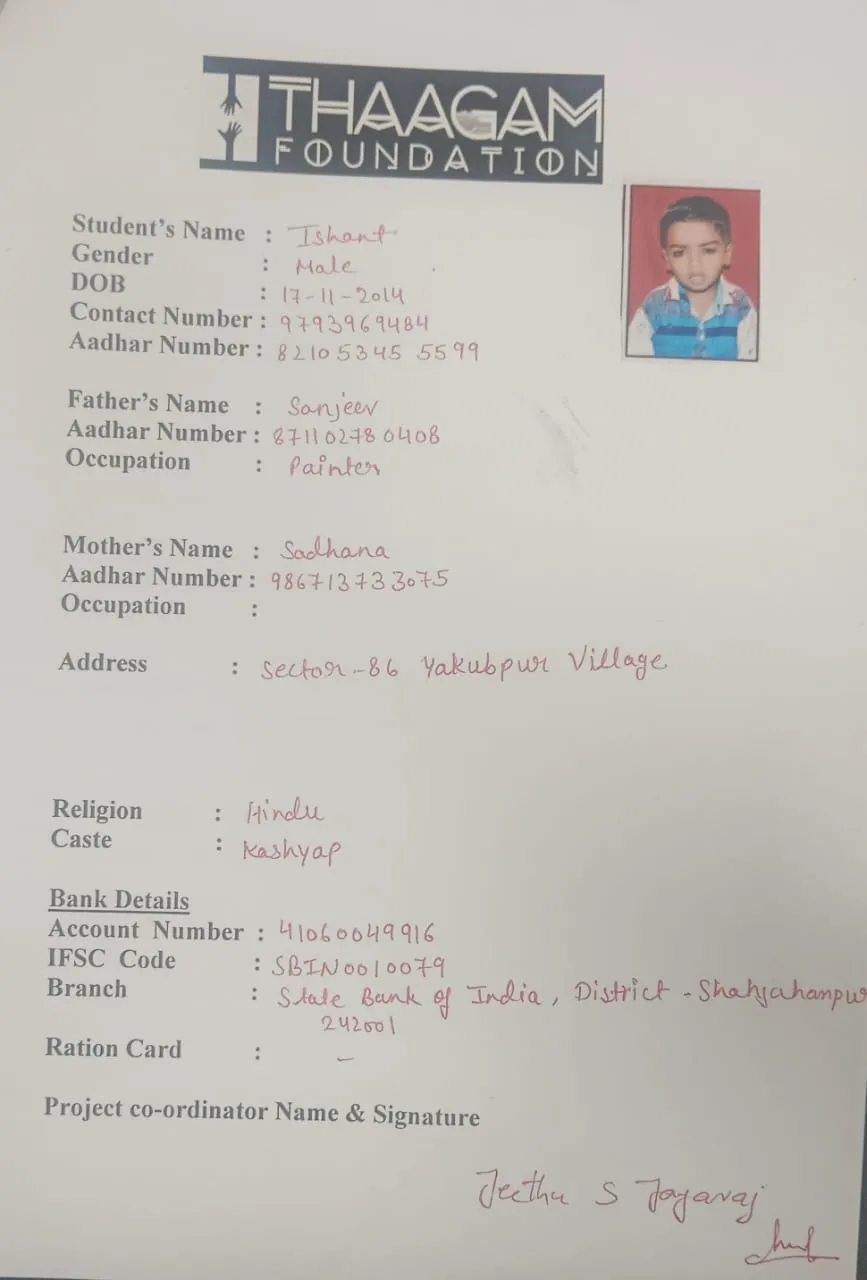 THAAGAM
FOUNDATION
Student's Name : Ishant
Gender : Male
DOB : 17-11-2014
Contact Number : 9793969484
Aadhar Number : 8210 5345 5599
Father's Name : Sanjeev
Aadhar Number : 871102780408
Occupation : Painter
Mother's Name : Sadhana
Aadhar Number : 986713733075
Occupation :
Address : Sector-86 Yakubpur Village
Religion : Hindu
Caste : Kashyap
Bank Details
Account Number : 41060049916
IFSC Code : SBIN0010079
Branch : State Bank of India, District - Shahjahanpur
242001
Ration Card : -
Project co-ordinator Name & Signature
Jeethu S Jayaraj